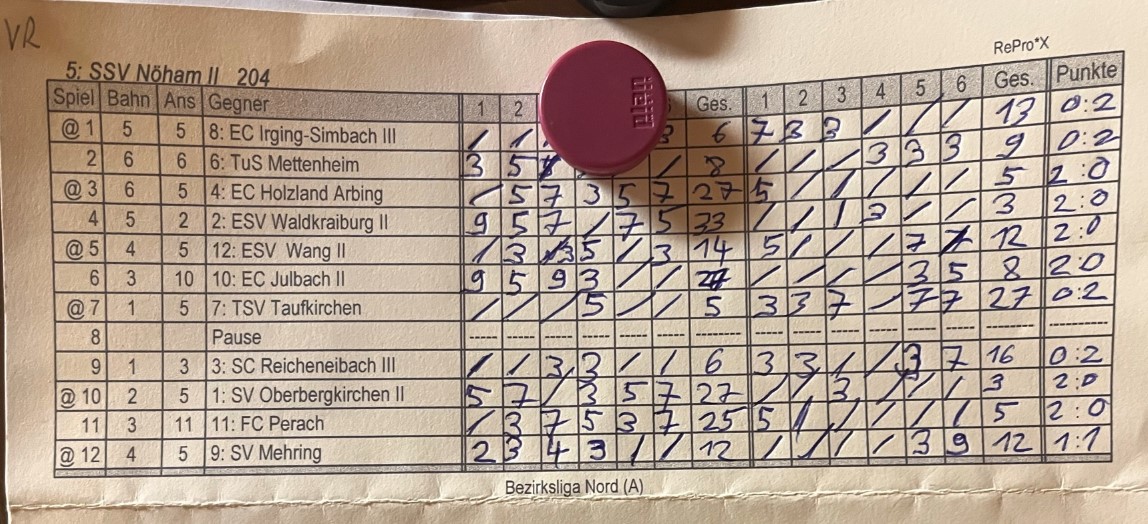 VR
RePro*X
5: SSV Nöham II 204
Spiel Bahn Ans Gegner 1 2 Ges. 1 2 3 4 5 6 Ges. Punkte
@ 1 5 5 8: EC Irging-Simbach III / / 3 6 7 3 3 / / / 13 0:2
2 6 6 6: TuS Mettenheim 3 5 / 8 / / / 3 3 3 9 0:2
@ 3 6 5 4: EC Holzland Arbing / 5 7 3 5 7 27 5 / / / / / 5 2:0
4 5 2 2: ESV Waldkraiburg II 9 5 7 / 7 5 33 / / / 3 / / 3 2:0
@ 5 4 5 12: ESV Wang II / 3 3 5 / 3 14 5 / / / 7 / 12 2:0
6 3 10 10: EC Julbach II 9 5 9 3 / / / / / / 3 5 8 2:0
@ 7 1 5 7: TSV Taufkirchen / / / 5 / / 5 3 3 7 / 7 7 27 0:2
8 Pause ----- ----- ----- ----- ----- ----- -------- ----- ----- ----- ----- ----- ----- -------- ----------
9 1 3 3: SC Reicheneibach III / / 3 3 / / 6 3 3 / / 3 7 16 0:2
@ 10 2 5 1: SV Oberbergkirchen II 5 7 / 3 5 7 27 / / 3 / / / 3 2:0
11 3 11 11: FC Perach / 3 7 5 3 7 25 5 / / / / / 5 2:0
@ 12 4 5 9: SV Mehring 2 3 4 3 / / 12 / / / / 3 9 12 1:1
Bezirksliga Nord (A)